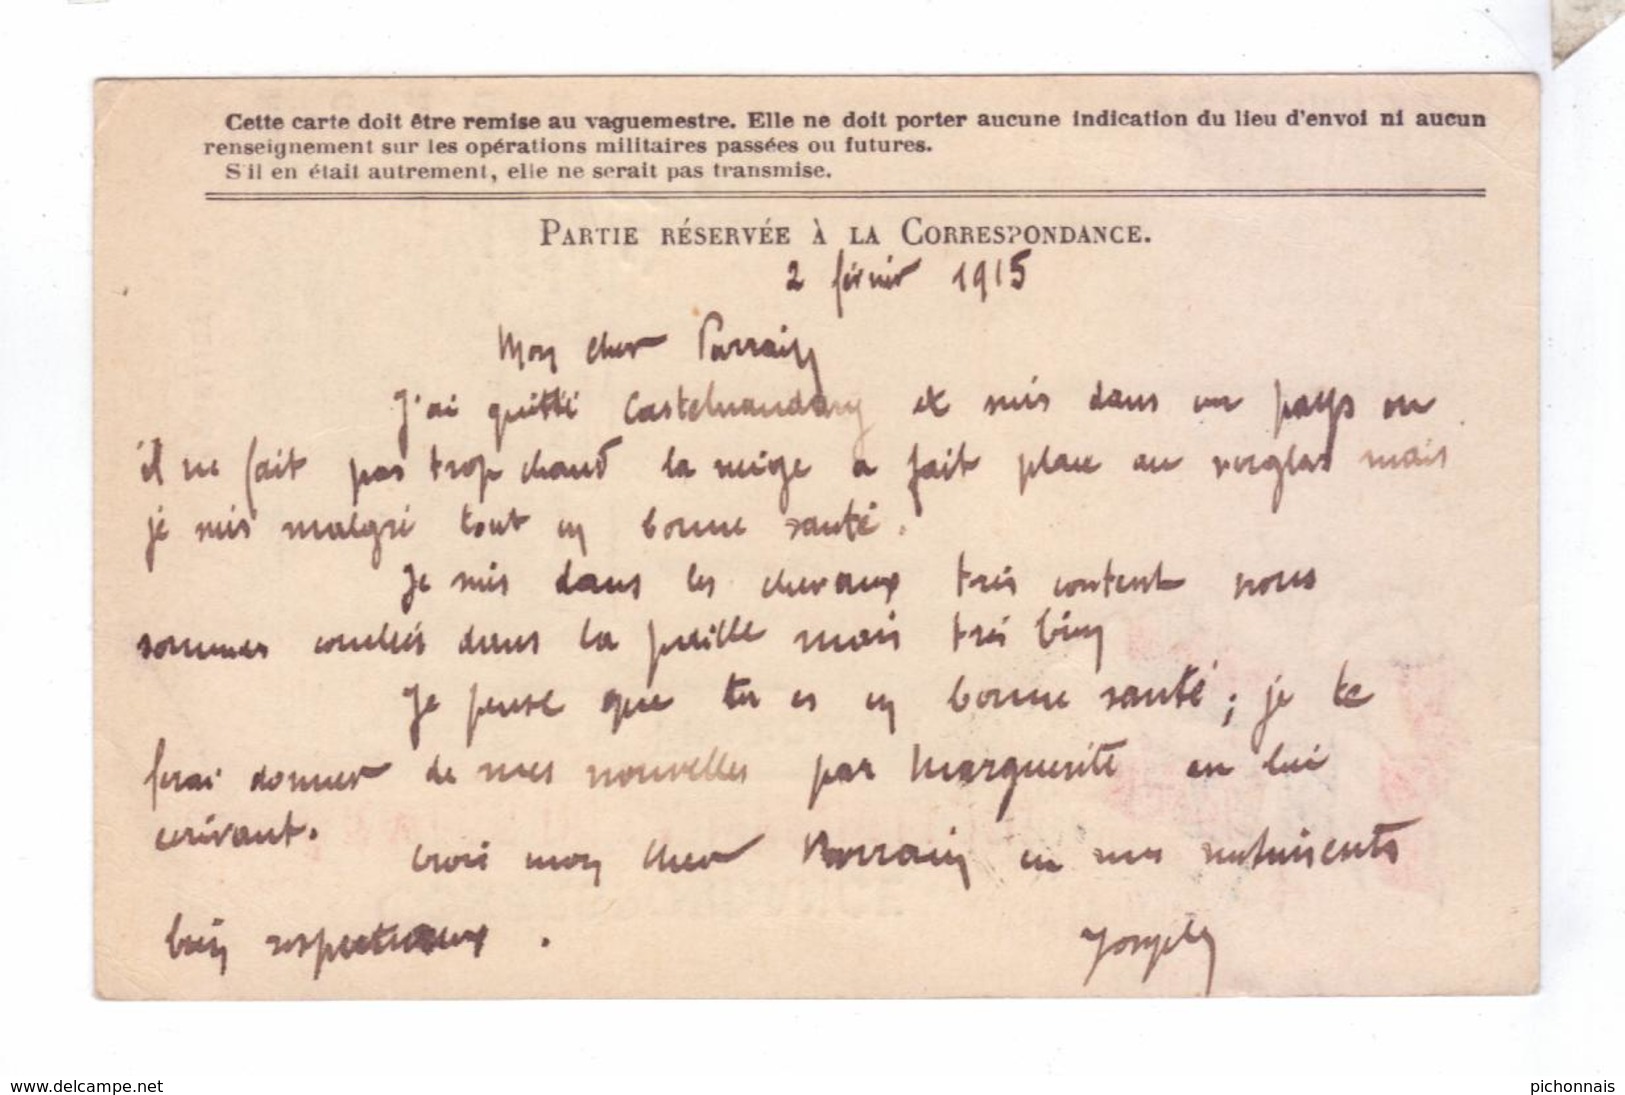 Cette carte doit être remise au vaguemestre. Elle ne doit porter aucune indication du lieu d'envoi ni aucun
renseignement sur les opérations militaires passées ou futures.
S'il en était autrement, elle ne serait pas transmise.
PARTIE RÉSERVÉE À LA CORRESPONDANCE.
2 février 1915
Mon cher Parrain
J'ai quitté Castelnaudary et suis dans un pays ou
il ne fait pas trop chaud la neige a fait place au verglas mais
je suis malgré tout en bonne santé.
Je suis dans les chevaux très content nous
sommes couchés dans la paille mais très bien
Je pense que tu es en bonne santé ; je te
ferai donner de mes nouvelles par Marguerite en lui
ecrivant.
Crois mon cher Parrain en mes sentiments
bien respectueux.
www.delcampe.net
pichonnais